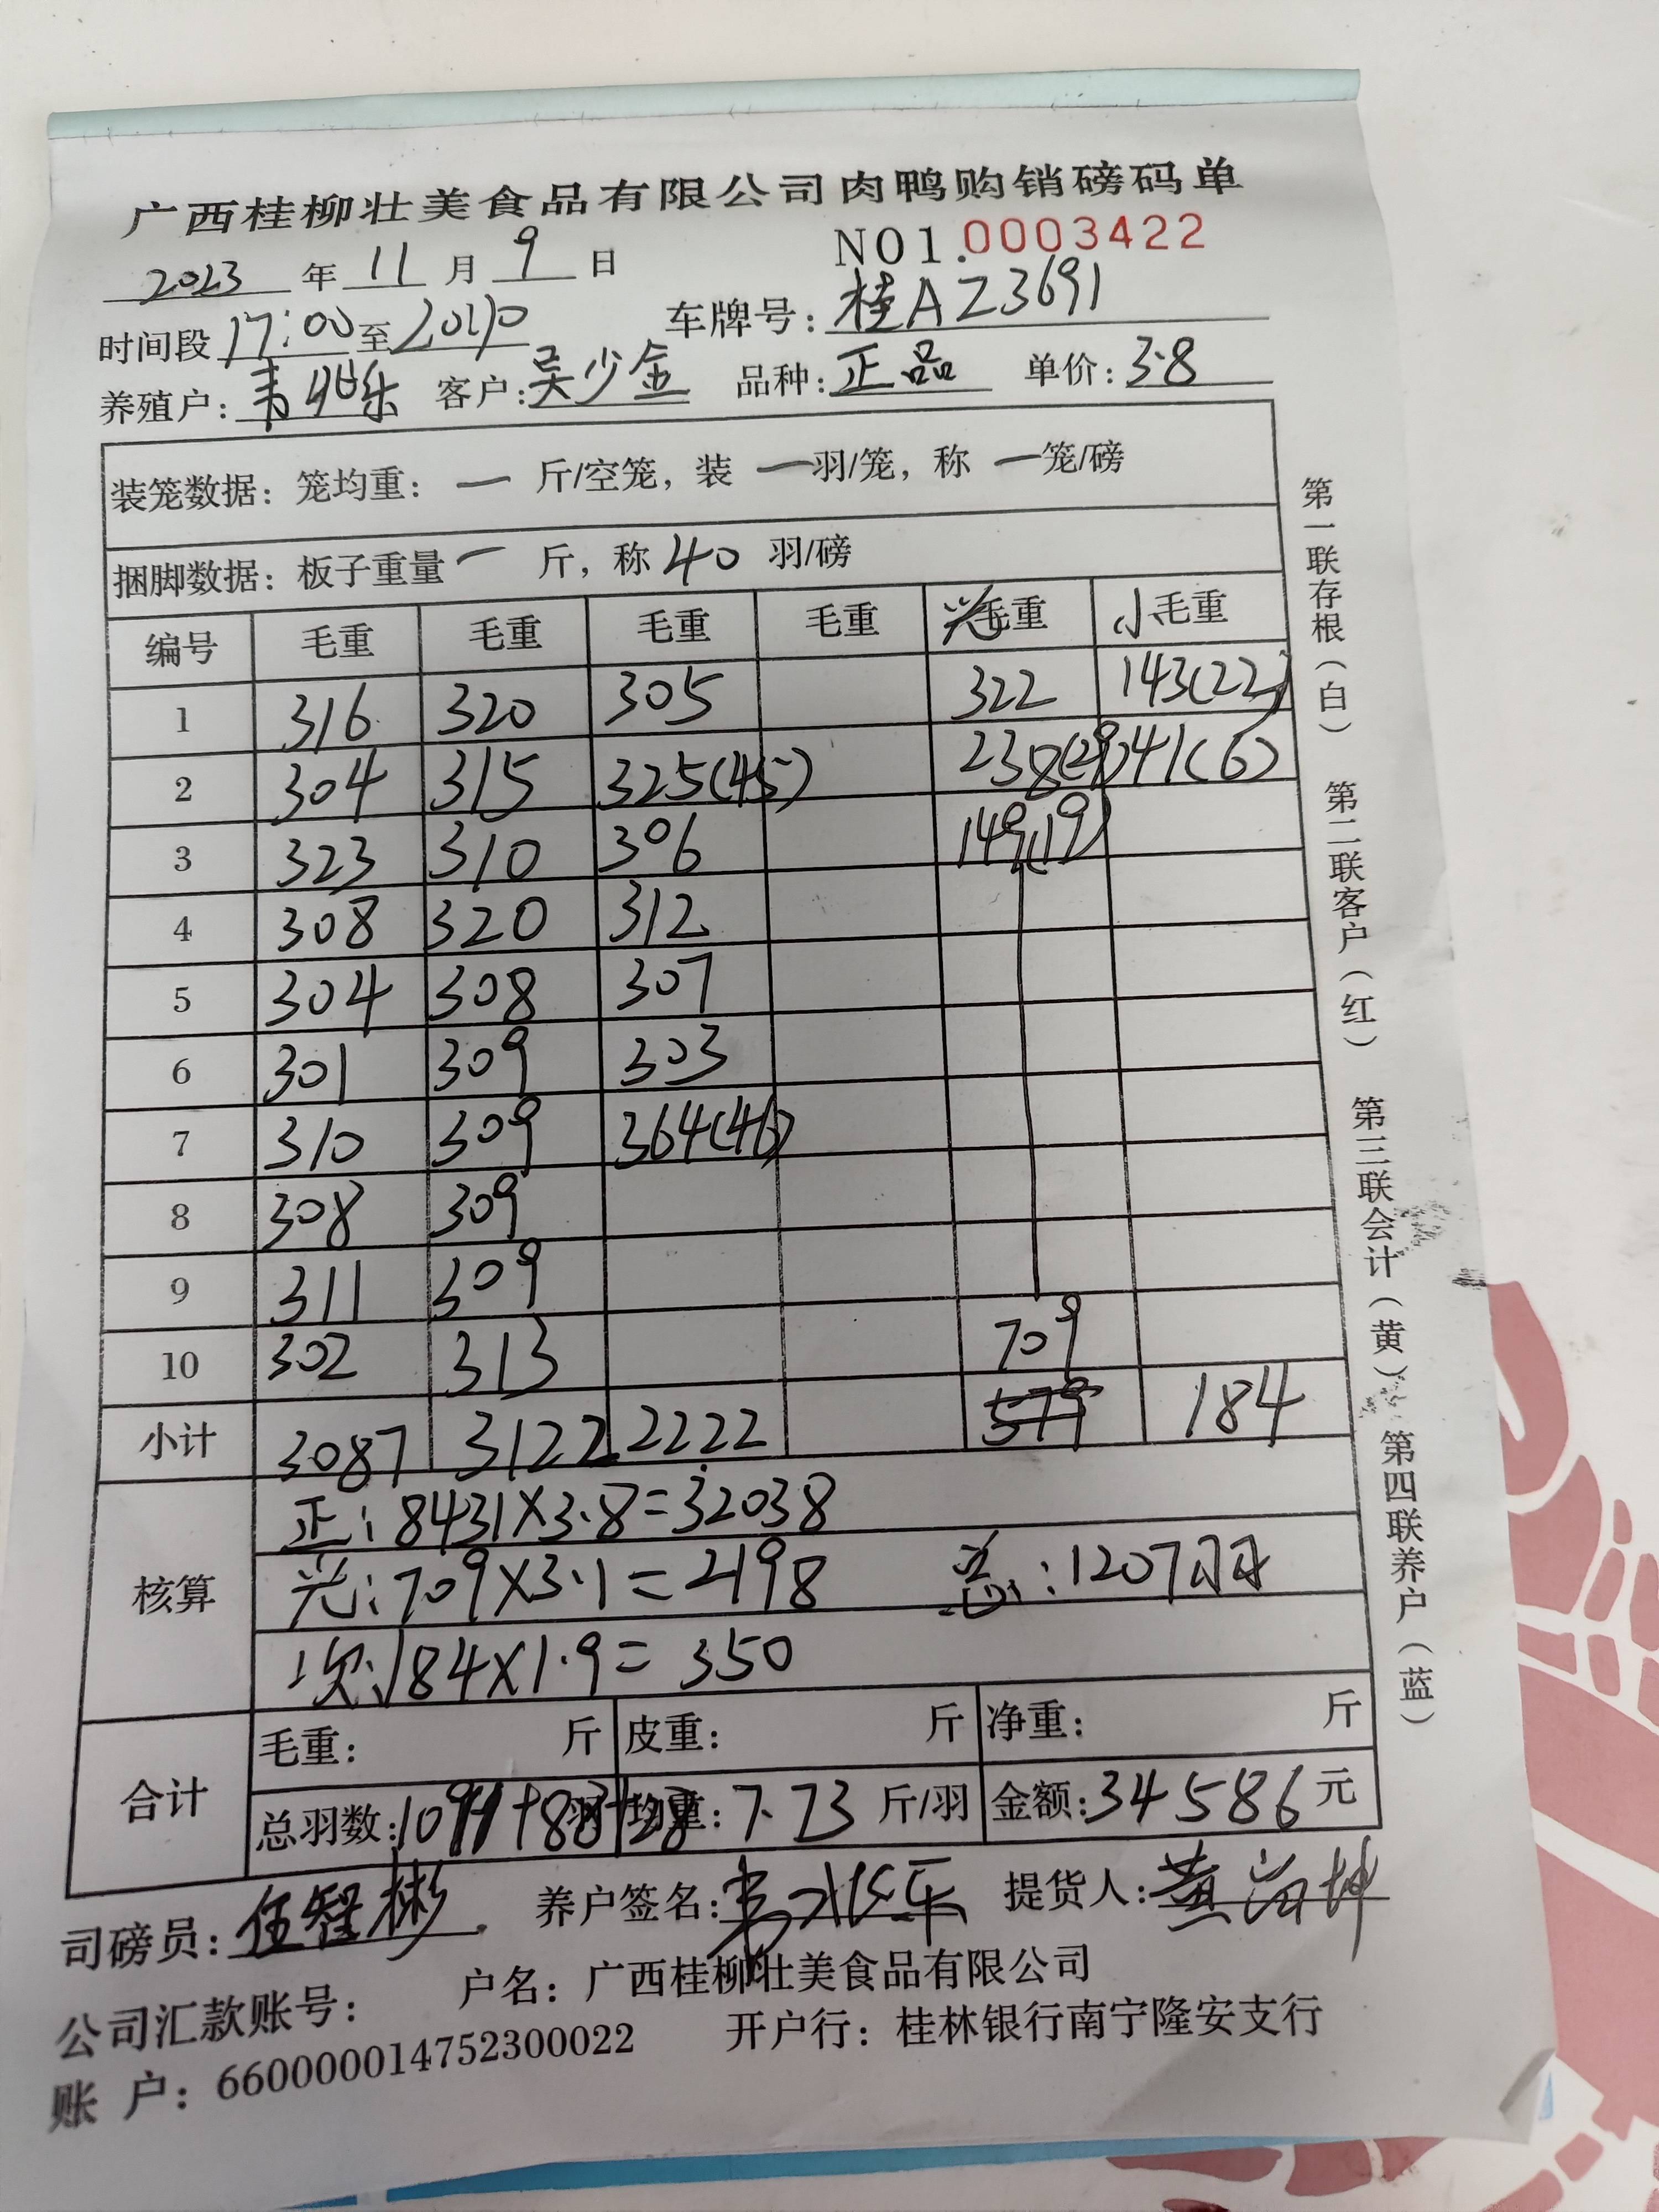 广西桂柳壮美食品有限公司肉鸭购销磅码单
2023 年 11 月 9 日 NO1.0003422
时间段 17:00 至 20:10 车牌号: 桂AZ3691
养殖户: 韦兆乐 客户: 吴少金 品种: 正品 单价: 3.8
装笼数据: 笼均重: 一 斤/空笼, 装 一 羽/笼, 称 一 笼/磅
捆脚数据: 板子重量 一 斤, 称 40 羽/磅
编号 毛重 毛重 毛重 毛重 光毛重 小毛重
1 316 320 305 322 143(22)
2 304 315 325(45) 238(29) 41(6)
3 323 310 306 149(19)
4 308 320 312
5 304 308 307
6 301 309 303
7 310 309 364(46)
8 308 309
9 311 309
10 302 313 709
小计 3087 3122 2222 579 184
核算 正: 8431×3.8=32038
光: 709×3.1=2198 总: 1207羽
次: 184×1.9=350
合计 毛重: 斤 皮重: 斤 净重: 斤
总羽数: 1091+88+28 羽 均重: 7.73 斤/羽 金额: 34586 元
司磅员: 伍智彬 养户签名: 韦兆乐 提货人: 黄
公司汇款账号: 户名: 广西桂柳壮美食品有限公司
账 户: 660000014752300022 开户行: 桂林银行南宁隆安支行
第一联存根(白) 第二联客户(红) 第三联会计(黄) 第四联养户(蓝)